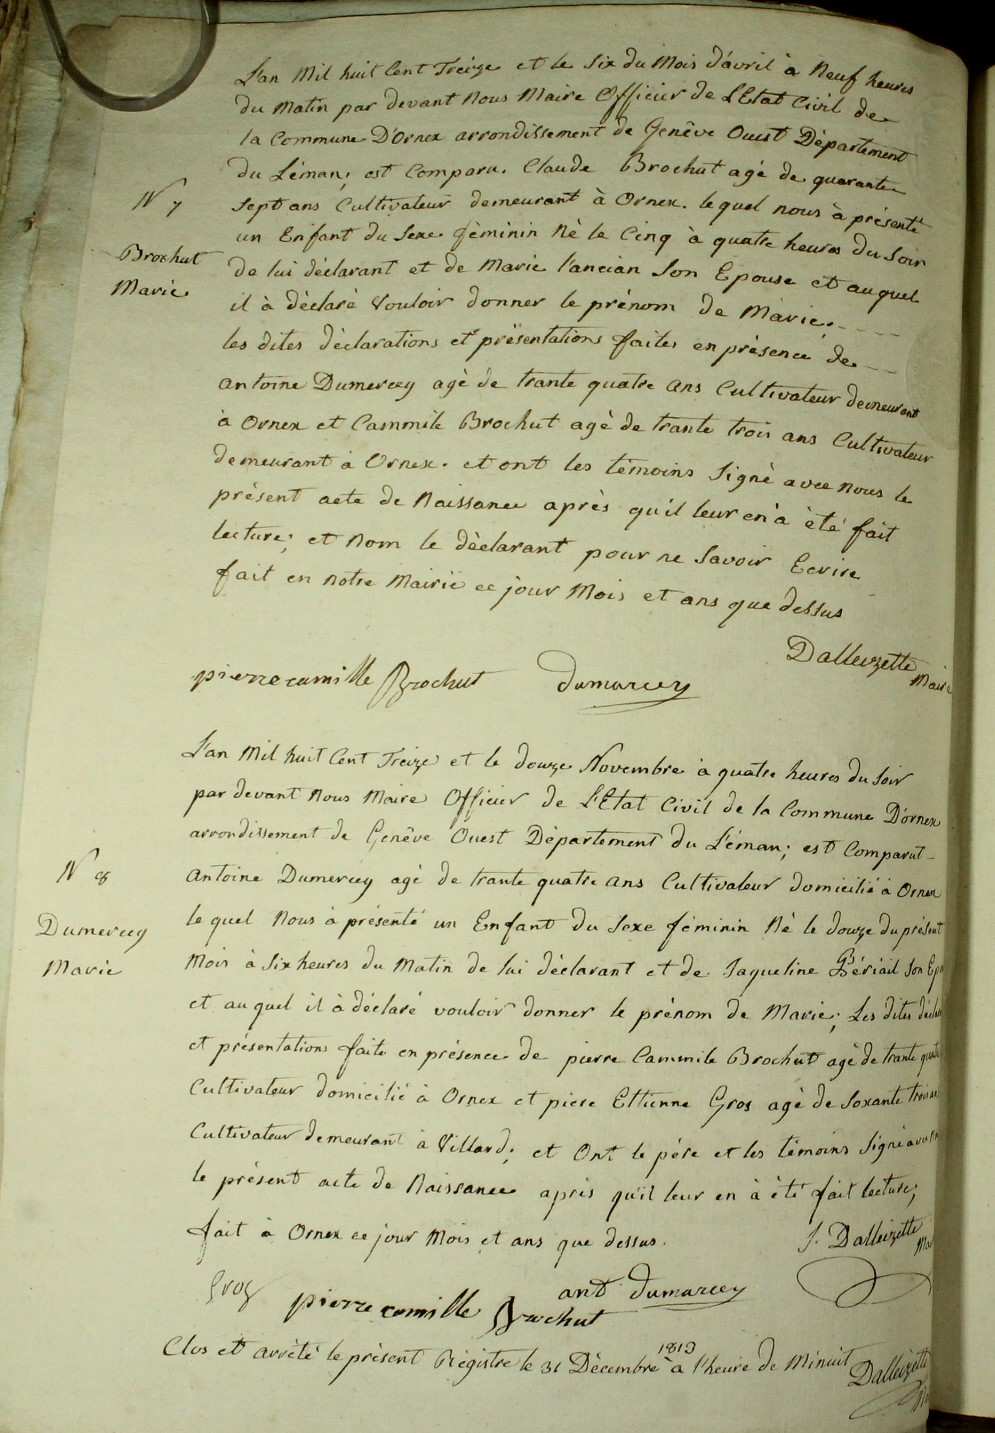 L'an Mil huit Cent Treize et le Six du Mois d'avril à Neuf heures
du Matin par devant Nous Maire Officier de L'Etat Civil de
la Commune D'ornex arrondissement de Genêve Ouest Département
du Léman; est Comparu. Claude Brochut agé de quarante
N 7
Sept ans Cultivateur demeurant à Ornex. lequel nous à présenté
un Enfant du Sexe féminin Né le Cinq à quatre heures du Soir
Brochut
de lui déclarant et de Marie l'ancian Son Epouse et auquel
Marie
il à déclaré Vouloir donner le prénom de Marie.
les dites déclarations et présentations faites en présence de
antoine Dumercey agé de trante quatre ans Cultivateur demeurant
à Ornex et Cammile Brochut agé de trante trois ans Cultivateur
demeurant à Ornex. et ont les témoins Signé avec nous le
présent acte de Naissance après qu'il leur en à été fait
lecture; et Nom le déclarant pour ne Savoir Ecrire
fait en notre Mairie ce jour Mois et ans que dessus
Dalleizette Maire
pierre camille Brochut dumarcey
L'an Mil huit Cent Treize et le douze Novembre à quatre heures du Soir
par devant Nous Maire Officier de L'Etat Civil de la Commune D'ornex
arrondissement de Genêve Ouest Département du Léman; est Comparut
N 8
antoine Dumercey agé de trante quatre ans Cultivateur domicilié à Ornex
Dumercey
le quel Nous à présenté un Enfant du Sexe féminin Né le douze du présent
Marie
Mois à Six heures du Matin de lui déclarant et de Jaqueline Bériail Son
et au quel il à déclaré vouloir donner le prénom de Marie; Les dites
et présentations faite en présence de pierre Cammile Brochut agé de trante
Cultivateur domicilié à Ornex et piere Ettienne Gros agé de Soxante trois
Cultivateur demeurant à Villard; et Ont le pére et les témoins Signé
le présent acte de Naissance après qu'il leur en à été fait lecture;
fait à Ornex ce jour Mois et ans que dessus.
J. Dalleizette
Gros pierre camille Brochut ant dumarcey
Clos et arrêté le présent Régistre le 31 Décembre 1813 à l'heure de Minuit
Dalleizette